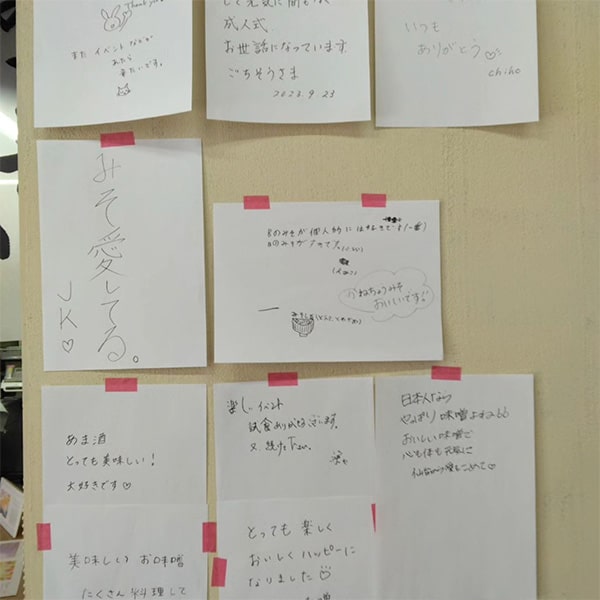 Thank you
また イベント などが
あたら
来たいです。
して元気に間もなく
成人式
お世話になっています
ごちそうさま
2023.9.23
いつも
ありがとう♡
chiho
みそ愛してる。
JK♡
Bのみそが個人的には好きです(一番)
かねちょうみそ
おいしいです。
あま酒
とっても美味しい!
大好きです♡
楽しいイベント
試食ありがとうございます。
又、続け下さい。
日本人なら
やっぱり味噌よね
おいしい味噌で
心も体も元気に
仙台から愛をこめて♡
美味しいお味噌
たくさん料理して
とっても楽しく
おいしくハッピーに
なりました♡